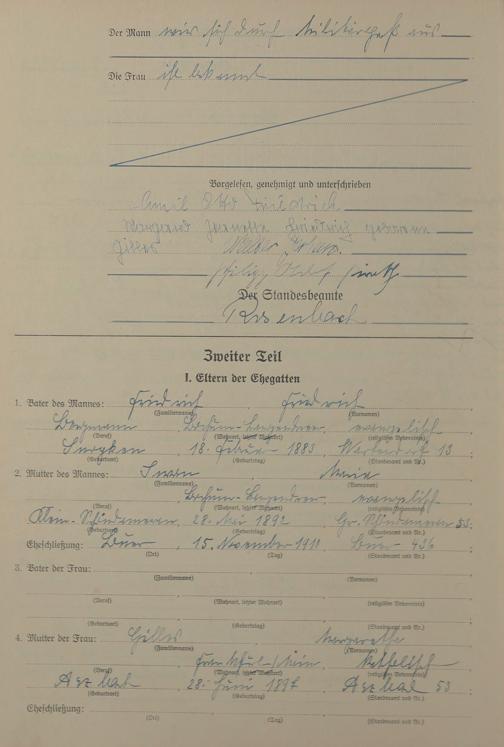 Der Mann wies sich durch Militärpaß aus
Die Frau ist bekannt
Vorgelesen, genehmigt und unterschrieben
Emil Otto Friedrich
Margarete Jeanette Friedrich geborene
Gilles
Der Standesbeamte
Rosenbach
Zweiter Teil
I. Eltern der Ehegatten
1. Vater des Mannes: Friedrich Friedrich
(Familienname) (Vornamen)
Bergmann Bochum-Langendreer evangelisch
(Beruf) (Wohnort, letzter Wohnort) (religiöses Bekenntnis)
18. Februar 1883 13
(Geburtsort) (Geburtstag) (Standesamt und Nr.)
2. Mutter des Mannes: Maria
(Familienname) (Vornamen)
Bochum-Langendreer evangelisch
(Beruf) (Wohnort, letzter Wohnort) (religiöses Bekenntnis)
28. Mai 1892 53
(Geburtsort) (Geburtstag) (Standesamt und Nr.)
Eheschließung: Buer 15. November 1911 Buer 436
(Ort) (Tag) (Standesamt und Nr.)
3. Vater der Frau:
(Familienname) (Vornamen)
(Beruf) (Wohnort, letzter Wohnort) (religiöses Bekenntnis)
(Geburtsort) (Geburtstag) (Standesamt und Nr.)
4. Mutter der Frau: Gilles Margarethe
(Familienname) (Vornamen)
Frankfurt/Main katholisch
(Beruf) (Wohnort, letzter Wohnort) (religiöses Bekenntnis)
28. Juni 1897 53
(Geburtsort) (Geburtstag) (Standesamt und Nr.)
Eheschließung:
(Ort) (Tag) (Standesamt und Nr.)